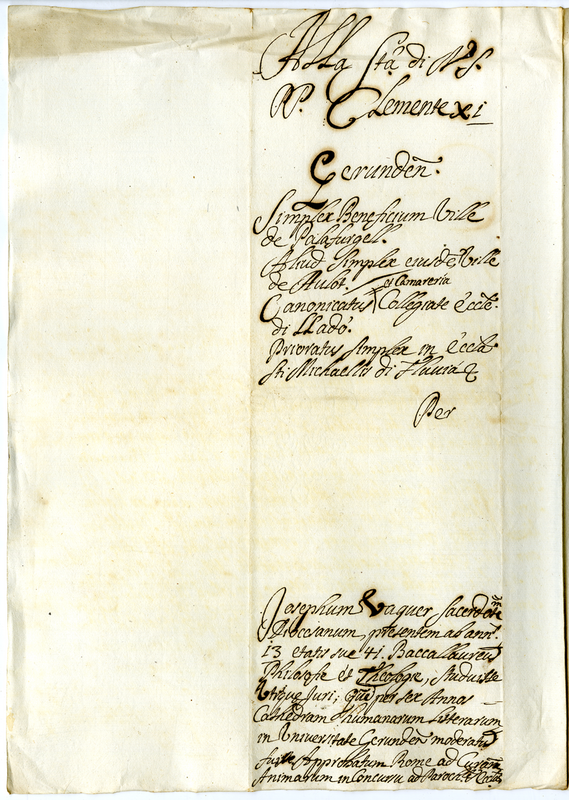 Alla Stà di N. S.
PP. Clemente xi
Gerunden̄.
Simplex Beneficium Ville
de Palafurgel.
Aliud Simplex eiusdē Ville
de Aulot. et Camareria
Canonicatus Collegiate Eccłe.
di Lladó.
Prioratus simplex in Eccła
Sti Michaelis di Fluuiá
Per
Josephum Vaquer Sacerdotē
Diocesanum, presentem ab ann.
13 etatis sue 41. Baccallaureū
Philosofie et Theologie, studuisse
Utrique Juri; qui per sex Annos
Cathedram Humanarum Litterarum
in Universitate Gerunden̄ moderatus
fuit Approbatum Rome ad Curam
Animarum in Concursu ad Paroch.